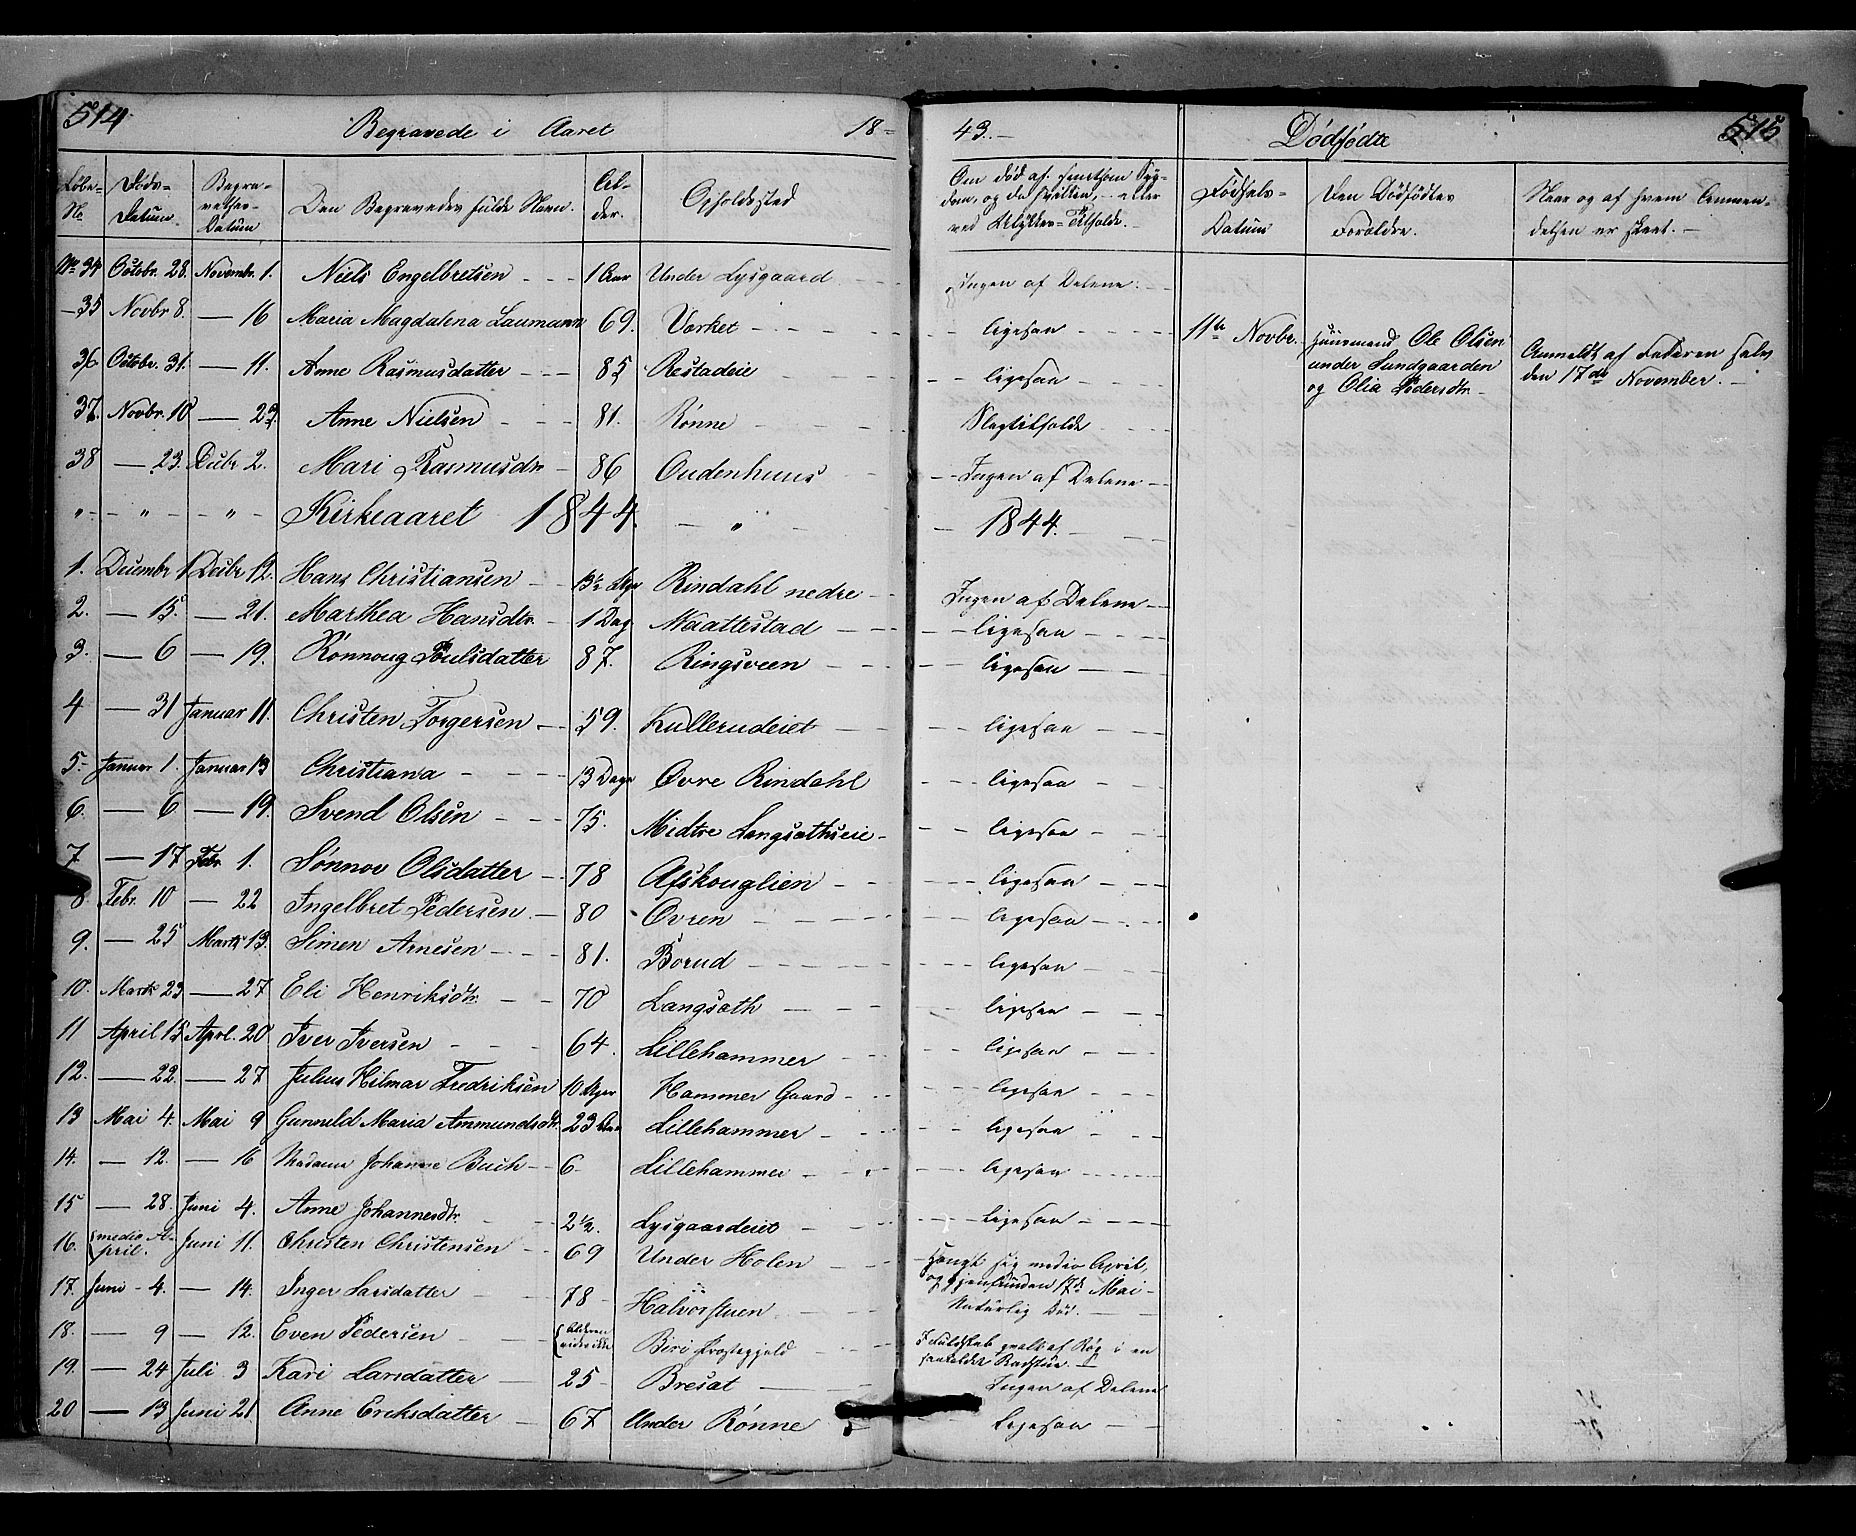 514 Begravede i Aaret 18= 43.— Dødfødte 515
Løbe- No. Døds- Datum. Begra- velses- Datum Den Begravedes fulde Navn. Al- der. Opholdssted Om død af smitsom Syg- dom, og da hvilken, eller ved Ulykkes-Tilfælde. Fødsels- Datum Den Dødfødtes Forældre. Naar og af hvem Anmel- delsen er skeet.
No 34 Octobr. 28. Novembr. 1. Niels Engelbretsen 1 Aar Under Lysgaard Ingen af Delene.
35 Novbr 8. — 16 Maria Magdalena Laumann 69. Værket ligesaa 11te Novbr. Huusmand Ole Olsen under Sundgaarden og Olia Pedersdtr. Anmeldt af Faderen selv den 17de November.
36 Octobr. 31. — 11. Anne Rasmusdatter 85 Restadeie ligesaa
37. Novbr. 10 — 23. Anne Nielsen 81. Rønne Slagtilfælde
38 — 23. Decbr 2. Mari Rasmusdtr 86 Oudenhuus Ingen af Delene
Kirkeaaret 1844. 1844.
1. Decembr 1 Decbr 12. Hans Christiansen 13½ Uge Rindahl nedre Ingen af Delene
2. — 15. — 21. Marthea Hansdtr. 1 Dag Maattestad ligesaa
3. — 6 — 19. Rønnoug Poulsdatter 87. Ringsveen ligesaa
4 — 31 Januar 11. Christen Torgersen 59. Kullerudeiet ligesaa
5. Januar 1. Januar 13 Christiana 13 Dage Øvre Rindahl ligesaa
6. — 6 — 19. Svend Olsen 75. Midtre Langsæthseie ligesaa
7 — 17 Febr. 1. Sønnov Olsdatter 78 Afskouglien ligesaa
8 Febr. 10 — 22 Ingelbret Pedersen 80 Ovren ligesaa
9. — 25 Marts 13. Simen Arnesen 81. Borud ligesaa
10. Marts 23 — 27 Eli Henriksdtr. 70 Langsæth ligesaa
11 April 15 Aprl. 20 Iver Iversen 64. Lillehammer ligesaa
12. — 22. — 27 Julius Hilmar Fredriksen 10 Uger Hammer Gaard ligesaa
13 Mai 4. Mai 9 Gunneld Maria Ammundsdtr. 23 Aar Lillehammer ligesaa
14. — 12. — 16 Madame Johanne Buch 6 Lillehammer ligesaa
15 — 28. Juni 4. Anne Johannesdtr. 2½. Lysgaardeiet ligesaa
16. medio A- pril. Juni 11. Christen Christensen 69 Under Holen Hængt sig medio April, og gjenfunden 17de Mai
17. Juni 4. — 14. Inger Larsdatter 78 Halvorstuen Naturlig Død.
18. — 9 — 12. Even Pedersen Alderen vides ikke Biri Præstegjeld qvalt af Røg i en Badstue.
19. — 24 Juli 3 Kari Larsdatter 25 Bresæt Ingen af Delene
20 — 13 Juni 21 Anne Eriksdatter 67 Under Rønne Ligesaa